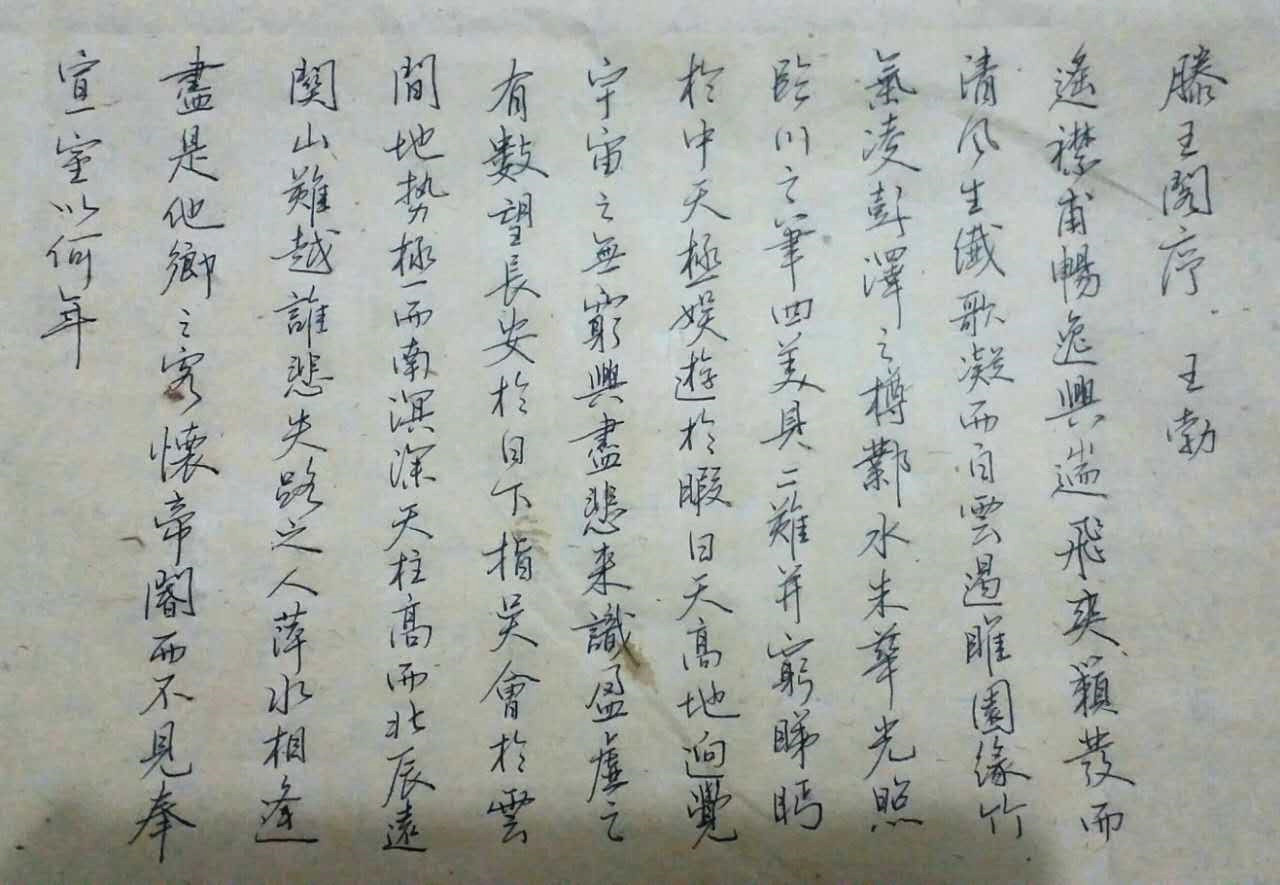 滕王閣序 王勃
遙襟甫暢逸興遄飛爽籟發而
清風生纖歌凝而白雲遏睢園緣竹
氣凌彭澤之樽鄴水朱華光照
臨川之筆四美具二難并窮睇眄
於中天極娛遊於暇日天高地迥覺
宇宙之無窮興盡悲來識盈虛之
有數望長安於日下指吳會於雲
間地勢極而南溟深天柱高而北辰遠
関山難越誰悲失路之人萍水相逢
盡是他鄉之客懷帝閽而不見奉
宣室以何年